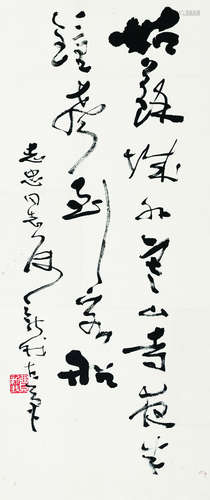 姑蘇城外寒山寺夜半
鐘聲到客船
志忠同志屬